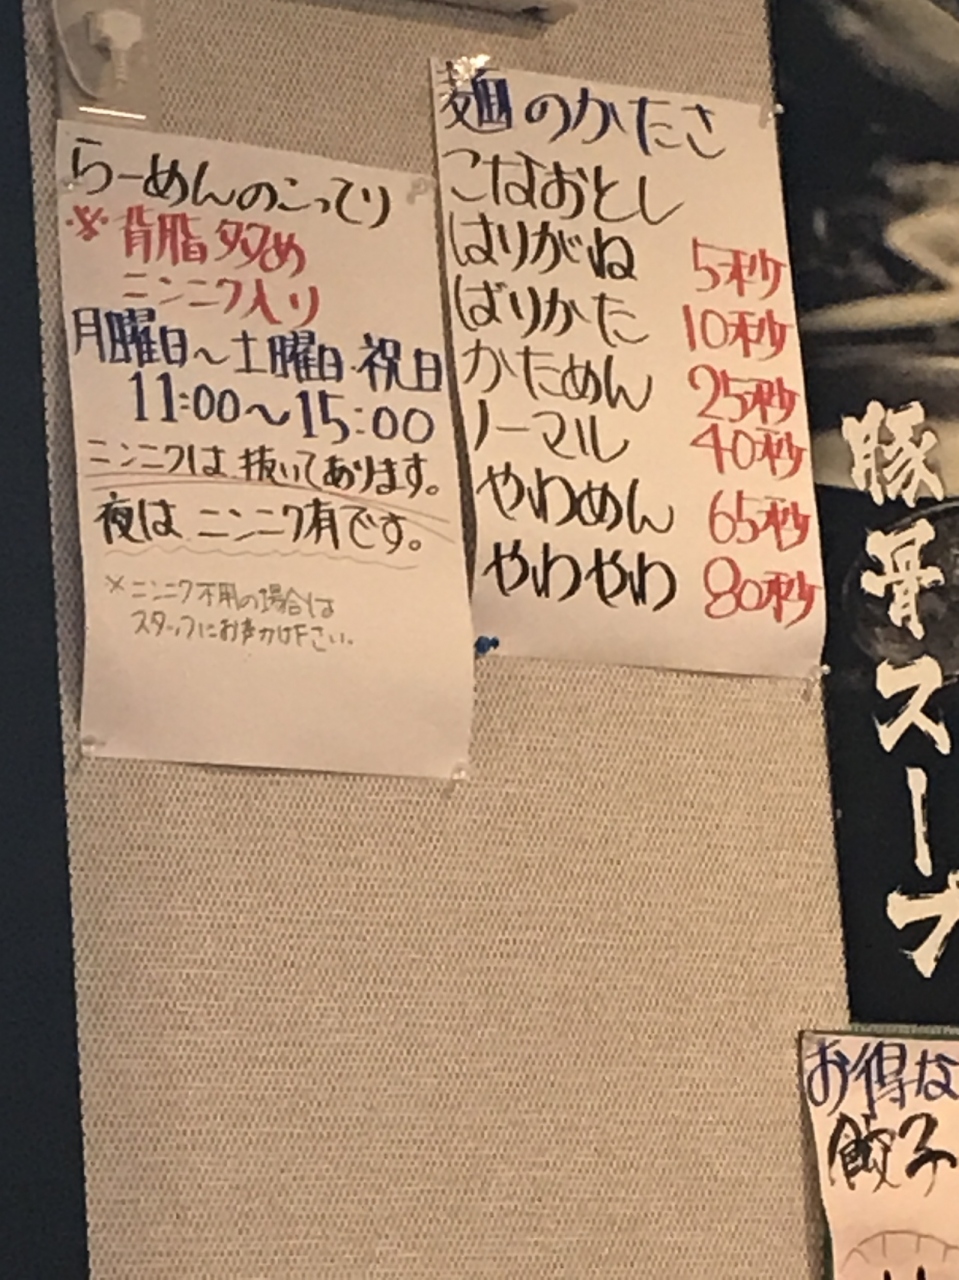 らーめんのこってり
※背脂多め
ニンニク入り
月曜日～土曜日・祝日
11:00～15:00
ニンニクは抜いてあります。
夜はニンニク有です。
※ニンニク不用の場合は
スタッフにお声かけ下さい。
麺のかたさ
こなおとし
はりがね 5秒
ばりかた 10秒
かためん 25秒
ノーマル 40秒
やわめん 65秒
やわやわ 80秒
豚骨スープ
お得な
餃子